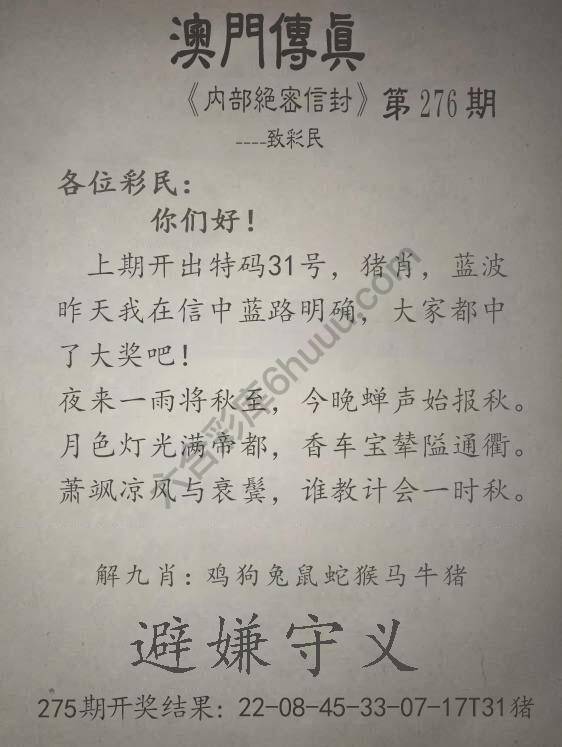 澳門傳眞
《内部絕密信封》第276期
----致彩民
各位彩民：
你们好！
上期开出特码31号，猪肖，蓝波
昨天我在信中蓝路明确，大家都中
了大奖吧！
夜来一雨将秋至，今晚蝉声始报秋。
月色灯光满帝都，香车宝辇隘通衢。
萧飒凉风与衰鬓，谁教计会一时秋。
解九肖：鸡狗兔鼠蛇猴马牛猪
避嫌守义
275期开奖结果：22-08-45-33-07-17T31猪
六合彩库6huuu.com